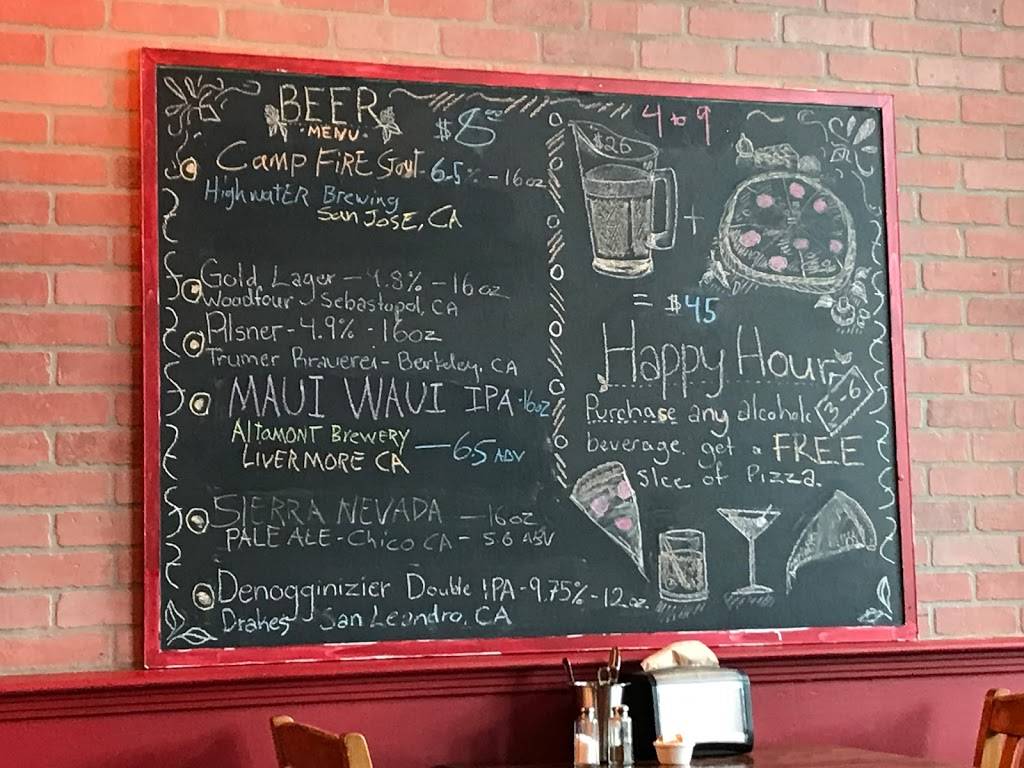 BEER
MENU
$8.00
CAMP FIRE Stout - 6.5% - 16oz
HighwatER Brewing
San JOSE, CA
Gold Lager - 4.8% - 16oz
Woodfour Sebastopol, CA
Pilsner - 4.9% - 16oz
Trumer Brauerei - Berkeley, CA
MAUI WAUI IPA - 16oz
AltAMONT BREWERY
LIVERMORE CA - 6.5 ABV
SIERRA NEVADA - 16oz
PALE ALE - Chico CA - 5.6 ABV
Denogginizier Double IPA - 9.75% - 12oz.
Drakes San Leandro, CA
4 to 9
$26
+
= $45
Happy Hour
3-6
Purchase any alcoholic
beverage, get a FREE
slice of Pizza.